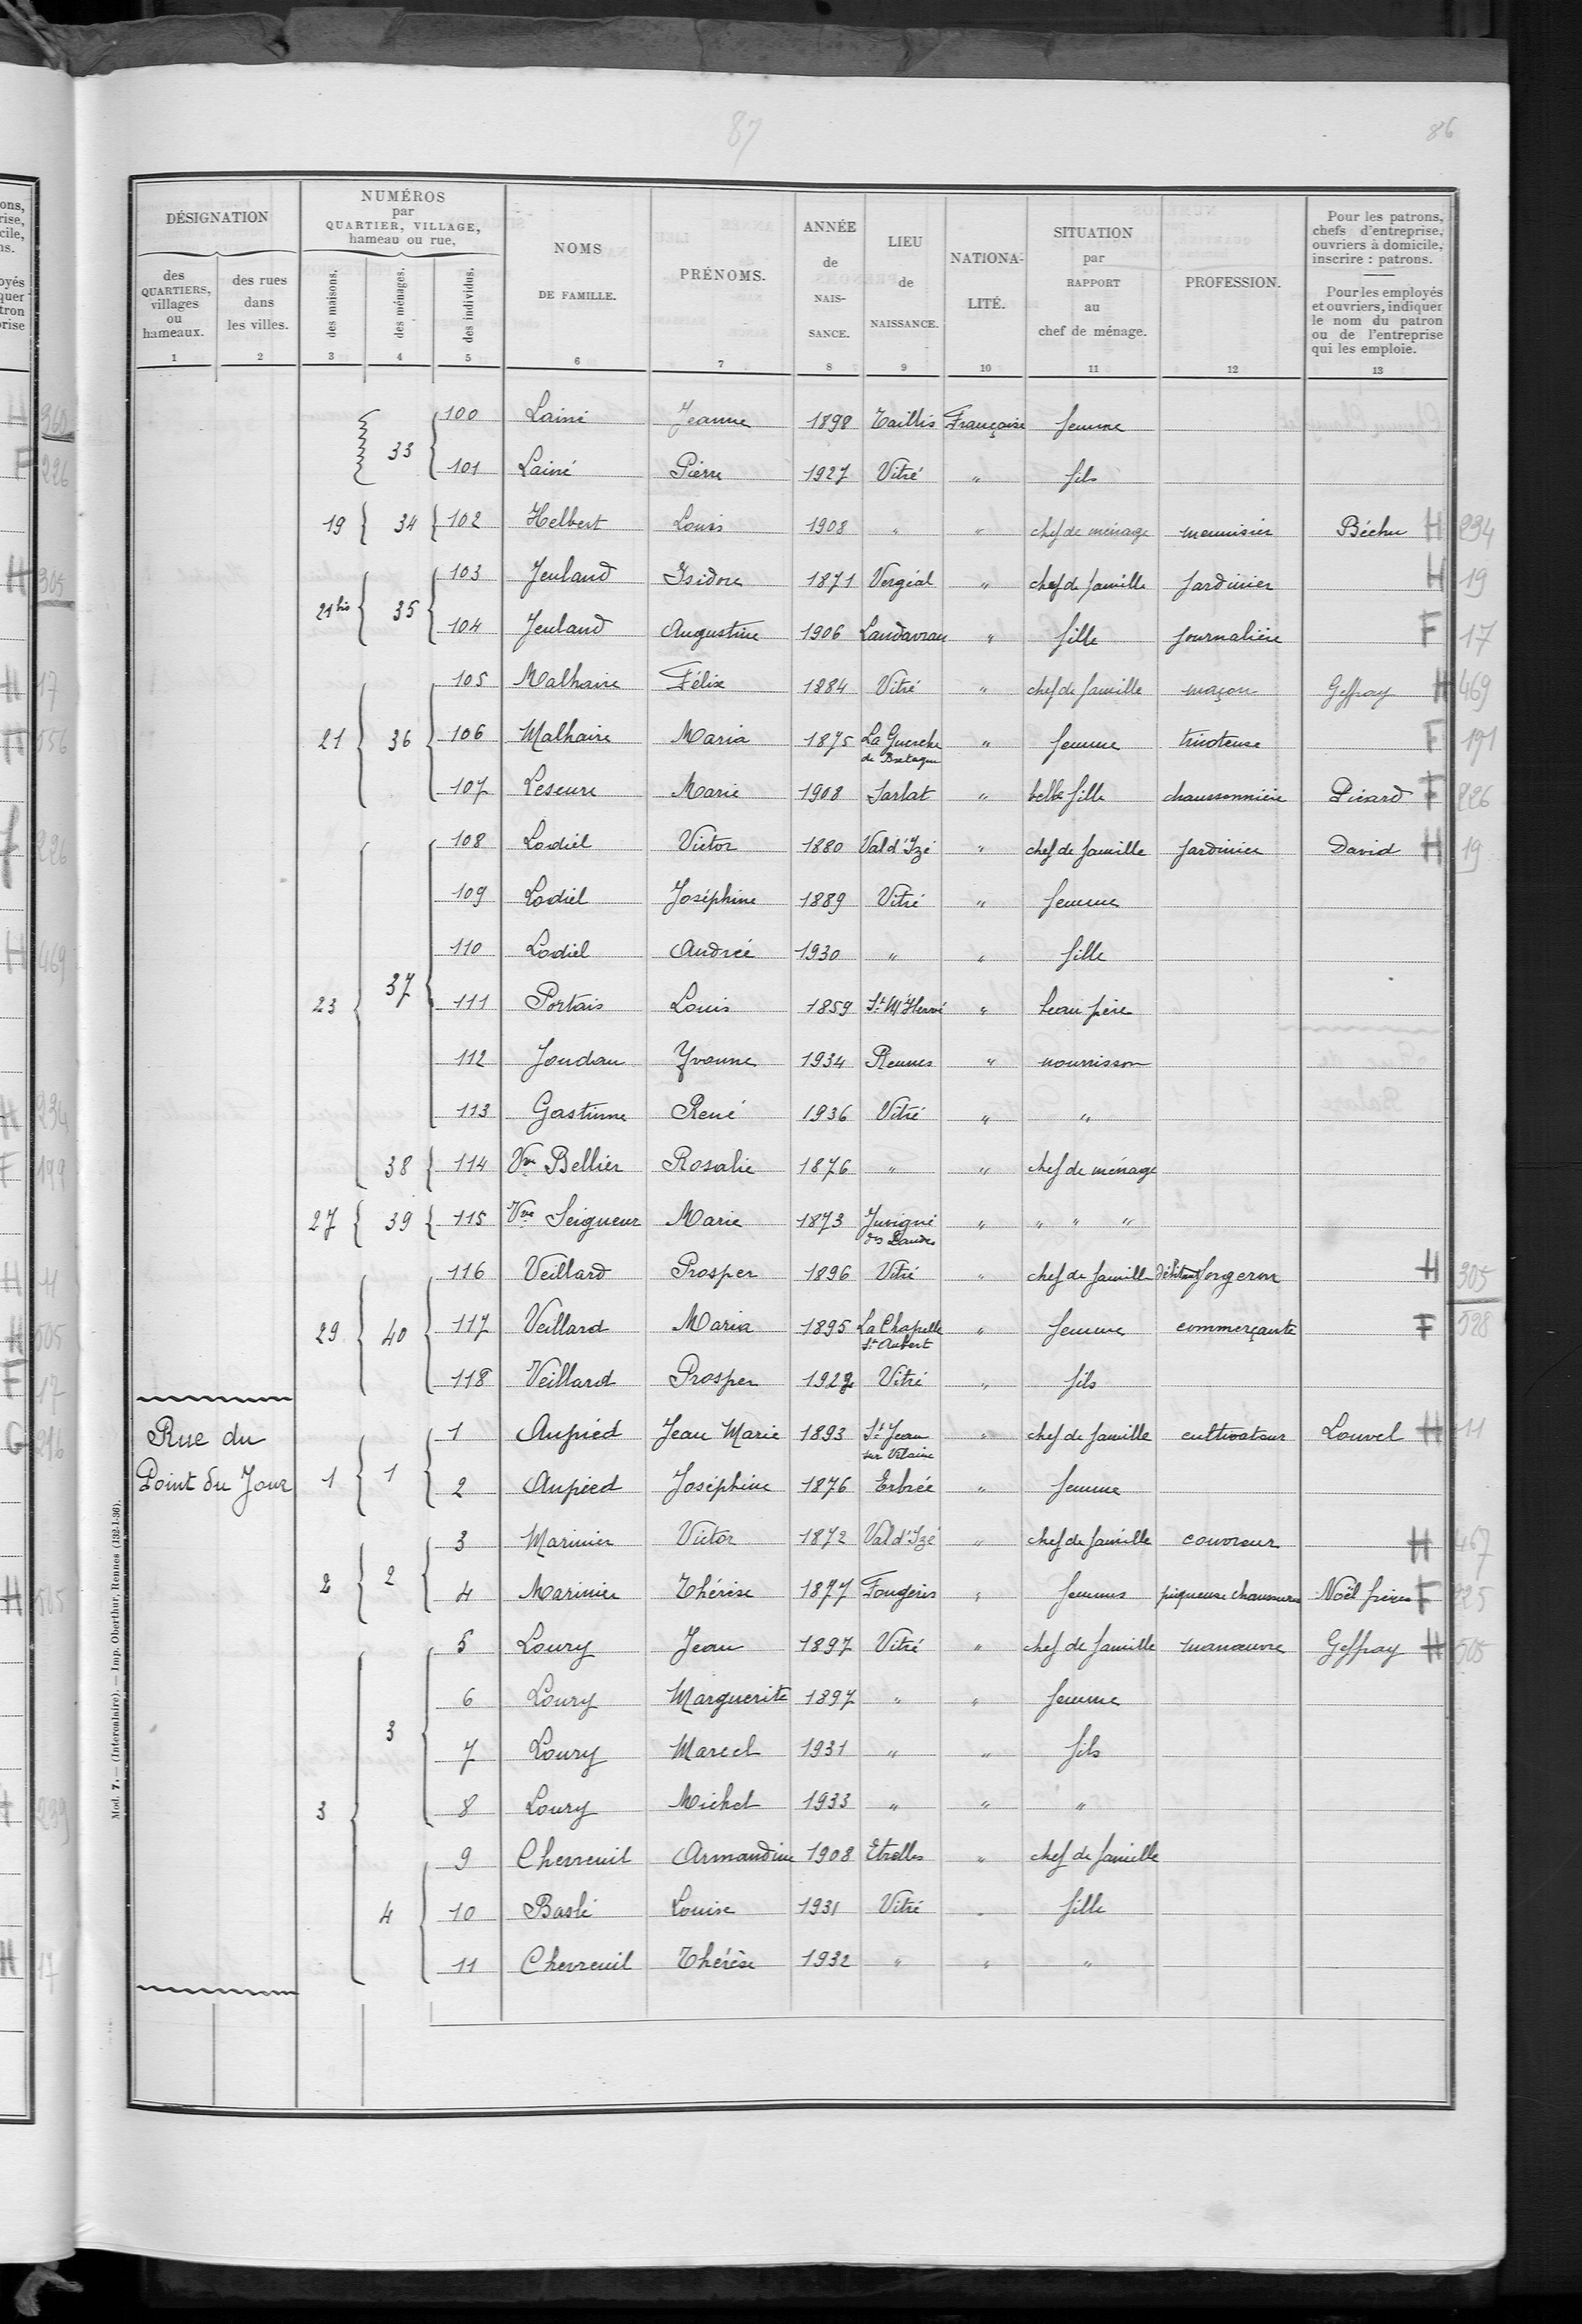 87
86
DÉSIGNATION
NUMÉROS
par
QUARTIER, VILLAGE,
hameau ou rue.
des
QUARTIERS,
villages
ou
hameaux.
des rues
dans
les villes.
des maisons.
des ménages.
des individus.
NOMS
DE FAMILLE.
PRÉNOMS.
ANNÉE
de
NAIS-
SANCE.
LIEU
de
NAISSANCE.
NATIONA-
LITÉ.
SITUATION
par
RAPPORT
au
chef de ménage.
PROFESSION.
Pour les patrons,
chefs d'entreprise,
ouvriers à domicile,
inscrire : patrons.
Pour les employés
et ouvriers, indiquer
le nom du patron
ou de l'entreprise
qui les emploie.
1 2 3 4 5 6 7 8 9 10 11 12 13
33 100 Lainé Jeanne 1898 Taillis Française femme
101 Lainé Pierre 1927 Vitré " fils
19 34 102 Helbert Louis 1908 " " chef de ménage menuisier Béchu H 234
21bis 35 103 Jeuland Isidore 1871 Vergéal " chef de famille jardinier H 19
104 Jeuland Augustine 1906 Landavran " fille journalière F 17
21 36 105 Malhaire Félix 1884 Vitré " chef de famille maçon Geffray H 469
106 Malhaire Maria 1875 La Guerche de Bretagne " femme tricoteuse F 191
107 Leseure Marie 1908 Sarlat " belle fille chaussonnière Picard F 226
23 37 108 Lodiel Victor 1880 Val d'Izé " chef de famille jardinier David H 19
109 Lodiel Joséphine 1889 Vitré " femme
110 Lodiel Andrée 1930 " " fille
111 Portais Louis 1859 St M'Hervé " beau père
112 Joudau Yvonne 1934 Rennes " nourrisson
113 Gastinne René 1936 Vitré " "
38 114 Vve Bellier Rosalie 1876 " " chef de ménage
27 39 115 Vve Seigneur Marie 1873 Juvigné des Landes " " " "
29 40 116 Veillard Prosper 1896 Vitré " chef de famille débitant forgeron H 305
117 Veillard Maria 1895 La Chapelle St Aubert " femme commerçante F 528
118 Veillard Prosper 1922 Vitré " fils
Rue du
Point du Jour
1 1 1 Aupied Jean Marie 1893 St Jean sur Vilaine " chef de famille cultivateur Louvel H 11
2 Aupied Joséphine 1876 Erbrée " femme
2 2 3 Marinier Victor 1872 Val d'Izé " chef de famille couvreur H 467
4 Marinier Thérèse 1877 Fougères " femme piqueuse chaussures Noël frères F 225
3 3 5 Loury Jean 1897 Vitré " chef de famille manœuvre Geffray H 505
6 Loury Marguerite 1897 " " femme
7 Loury Marcel 1931 " " fils
8 Loury Michel 1933 " " "
4 9 Chevreuil Armandine 1908 Etrelles " chef de famille
10 Baslé Louise 1931 Vitré " fille
11 Chevreuil Thérèse 1932 " " "
Mod. 7. — (Intercalaire). — Imp. Oberthur, Rennes (132-1-36).